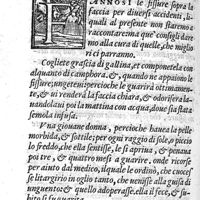 FANNOSI le fissure sopra la
faccia per diuersi accidenti, li
quali al presente non staremo a
raccontare ma que' consigli dare
mo alla cura di quelle, che miglio
ri ci parranno.
Cogliete grascia di gallina, et componetela con
alquanto di camphora, & quando ne appaiono le
fissure; ungeteni: percioche le guarirà ottimamen-
te, & ui renderà la faccia chiara, & odorifera la
uandolaui poi la mattina con acqua, doue sia sta
semola infusa.
Vna giouane donna, percioche haueua la pelle
morbida, & sottile; per ogni raggio di sole, o picco
lo freddo, che ella sentisse, le si apriua, & penaua
poi tre, & quattro mesi a guarire, onde ricorse
per aiuto dal medico, il quale le ordinò, che cuoces
se litargirio in oglio tanto, che uenisse alla guisa di
unguento: & quello adoperasse. ella il fece, &